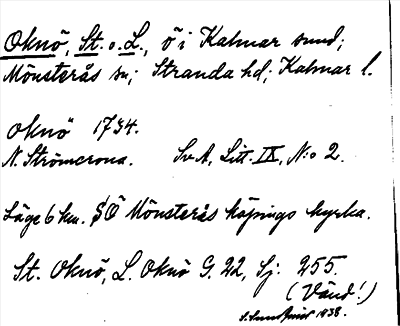 Oknö, St. o. L., ö i Kalmar sund;
Mönsterås sn; Stranda hd; Kalmar l.
Oknö 1734.
N. Strömcrona. Sv A, Litt. IX, N:o 2.
Läge 6 km. SÖ Mönsterås köpings kyrka.
St. Oknö, L. Oknö G. 22, Sj. 255.
(Vänd!)
1938.